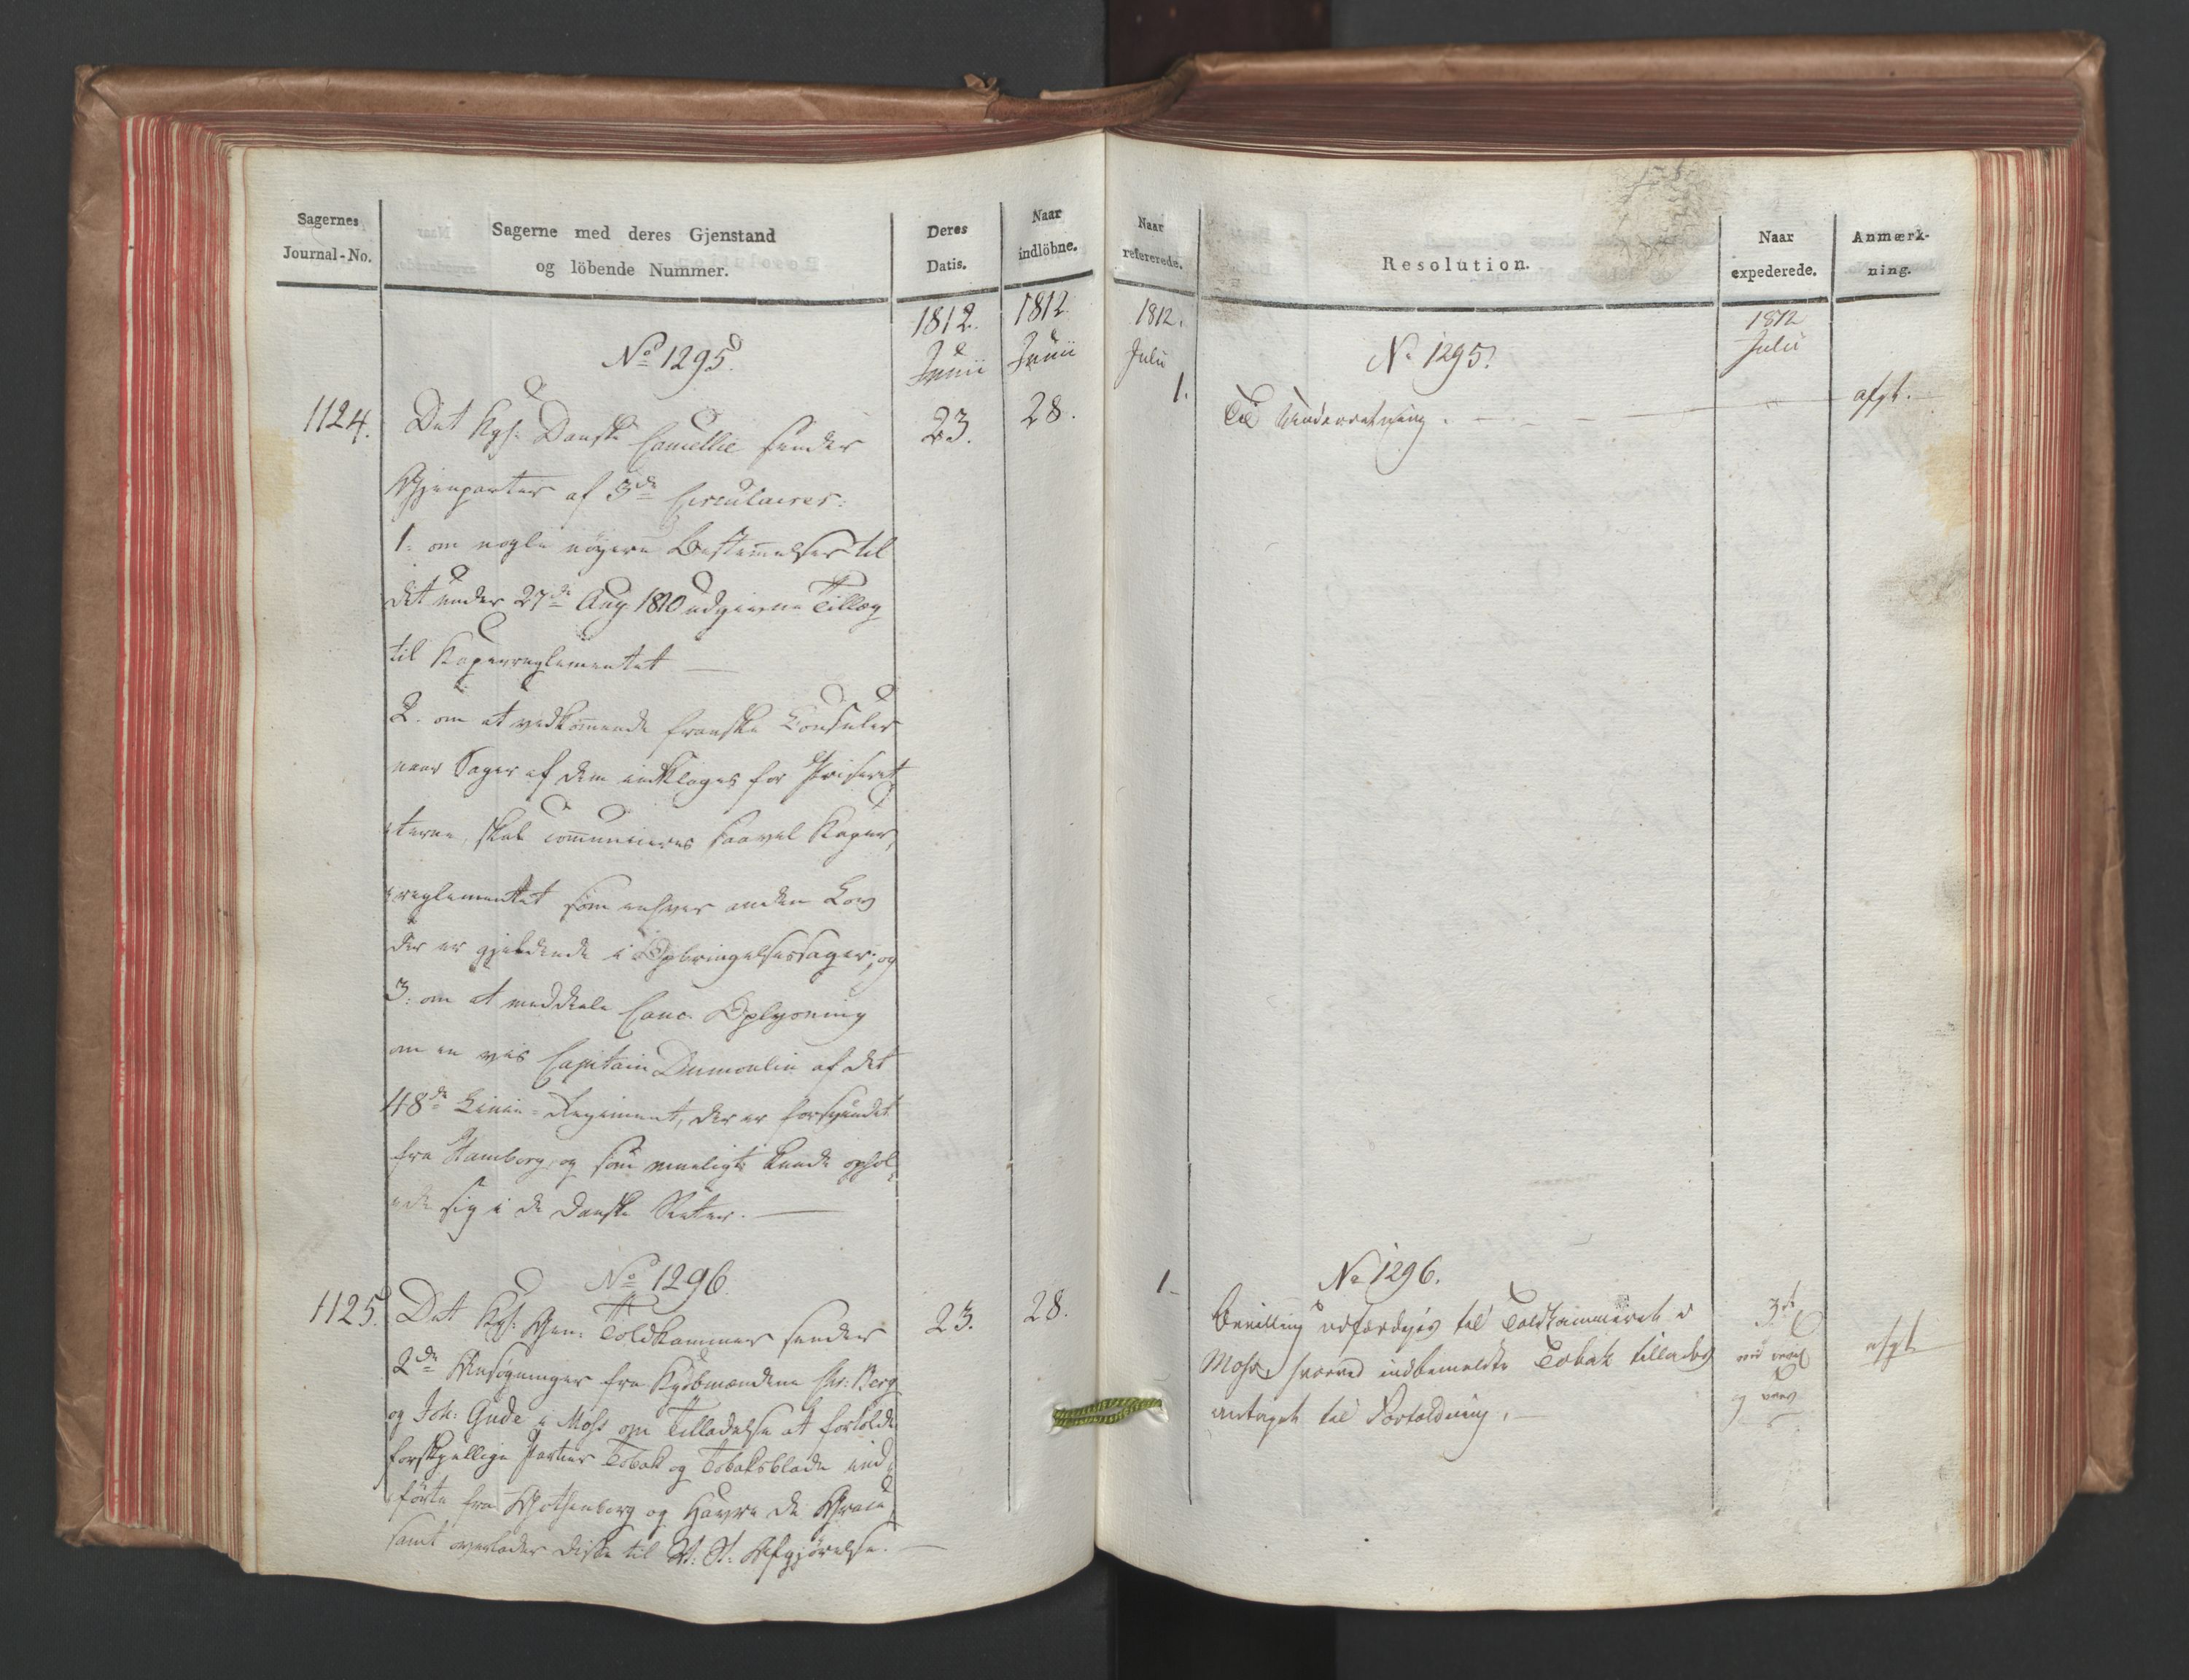 Sagernes
Journal-No.
Sagerne med deres Gjenstand
og löbende Nummer.
Deres
Datis.
Naar
indlöbne.
1812.
Junii
1812
Junii
No 1295.
1124.
Det Kgs: Danske Cancellie sender
23.
28.
Gjenparter af 3de Circulairer:
1. om nogle nöyere Bestemmelser til
det under 27de Aug 1810 udgivne Tillæg
til Kaperreglementet —
2. om at vedkommende franske Consuler
naar Sager af dem indklages for Priseret,
terne, skal communiceres saavel Kaper,
reglementet som enhver anden Lov
der er gjeldende i Opbringelsessager; og
3. om at meddele Canc. Oplysning
om en vis Capitain Dumoulin af det
48de Linie-Regiment, der er forsvundet
fra Hamborg, og som mueligt kunde ophol,
de sig i de danske Stater. —
No 1296.
1125.
Det Kgs: Gen: Toldkammer sender
23.
28.
2de Ansögninger fra Kjöbmændene Chr. Berg
og Joh: Gude i Moss om Tilladelse at fortolde
forskjellige Partier Tobak og Tobaksblade ind,
förte fra Gothenborg og Havre de Grace,
samt overlader disse til R: C: Afgjörelse. —
Naar
refererede.
Resolution.
Naar
expederede.
Anmærk-
ning.
1812.
Julii
1812
Julii
No 1295.
1.
Til Underretning. —
afgt.
No 1296.
1.
Bevilling udfærdiges til Toldkammeret i
Moss, hvorved indbemeldte Tobak tillades
antaget til Fortoldning. —
3de
og
afgt